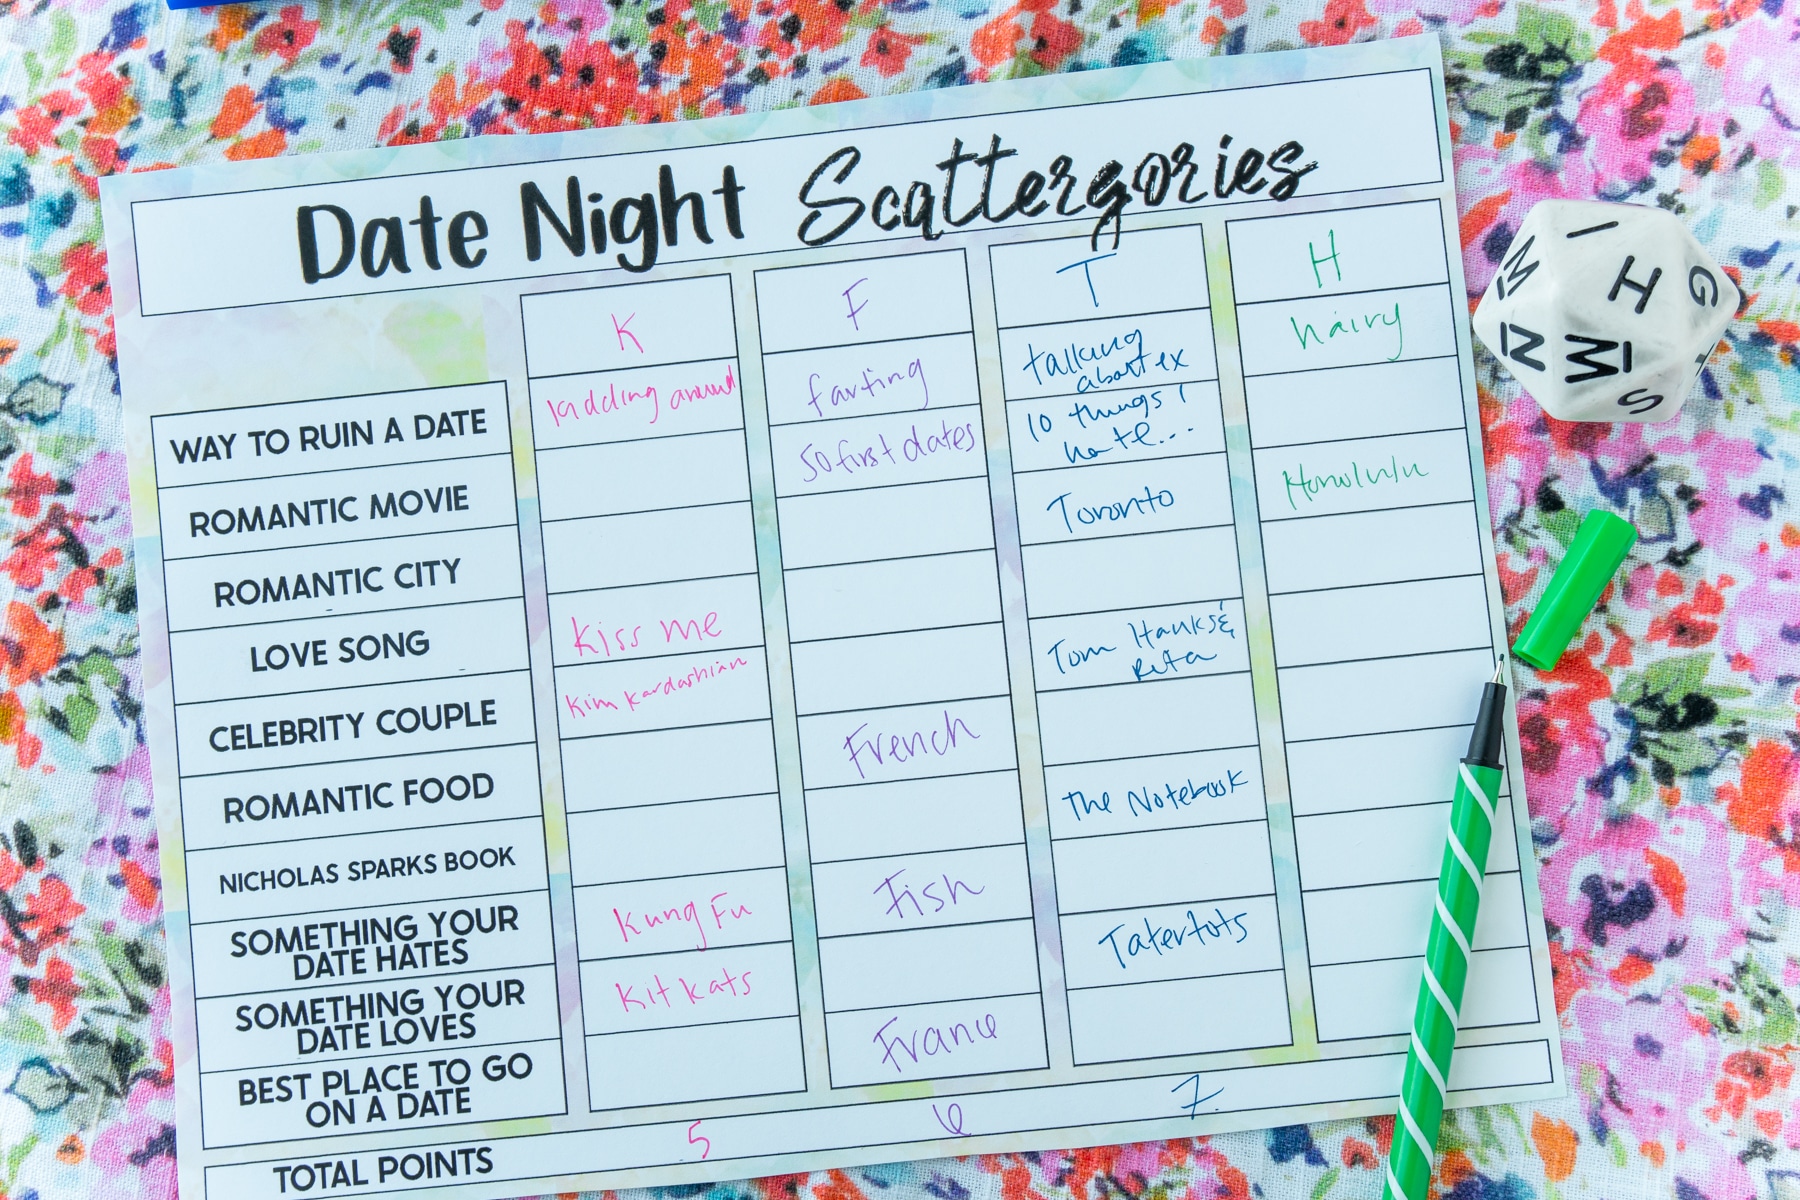 Date Night Scattergories
K F T H
WAY TO RUIN A DATE
kidding around
farting
talking
about ex
hairy
ROMANTIC MOVIE
50 first dates
10 things I
hate...
ROMANTIC CITY
Toronto
Honolulu
LOVE SONG
Kiss me
CELEBRITY COUPLE
Kim Kardashian
Tom Hanks &
Rita
ROMANTIC FOOD
French
NICHOLAS SPARKS BOOK
The Notebook
SOMETHING YOUR
DATE HATES
Kung Fu
Fish
SOMETHING YOUR
DATE LOVES
Kit kats
Tatertots
BEST PLACE TO GO
ON A DATE
France
TOTAL POINTS
5 6 7
I
M H G
N M
S